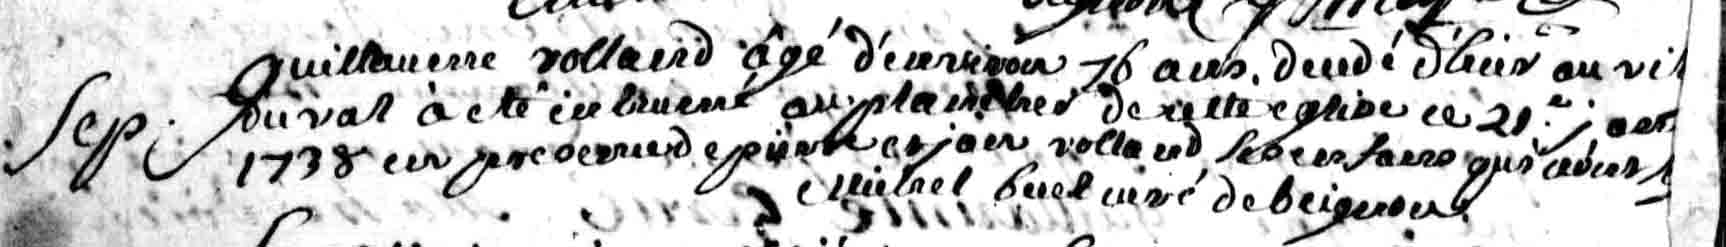 Guillaume volland âgé d'environ 76 ans. decedé d'hier au vil
Sep. duval à eté inhumé au placitre de cette eglise ce 21e janv
1738 en presence de pierre et jan volland ses enfans qui ont
Michel buel curé de beignon